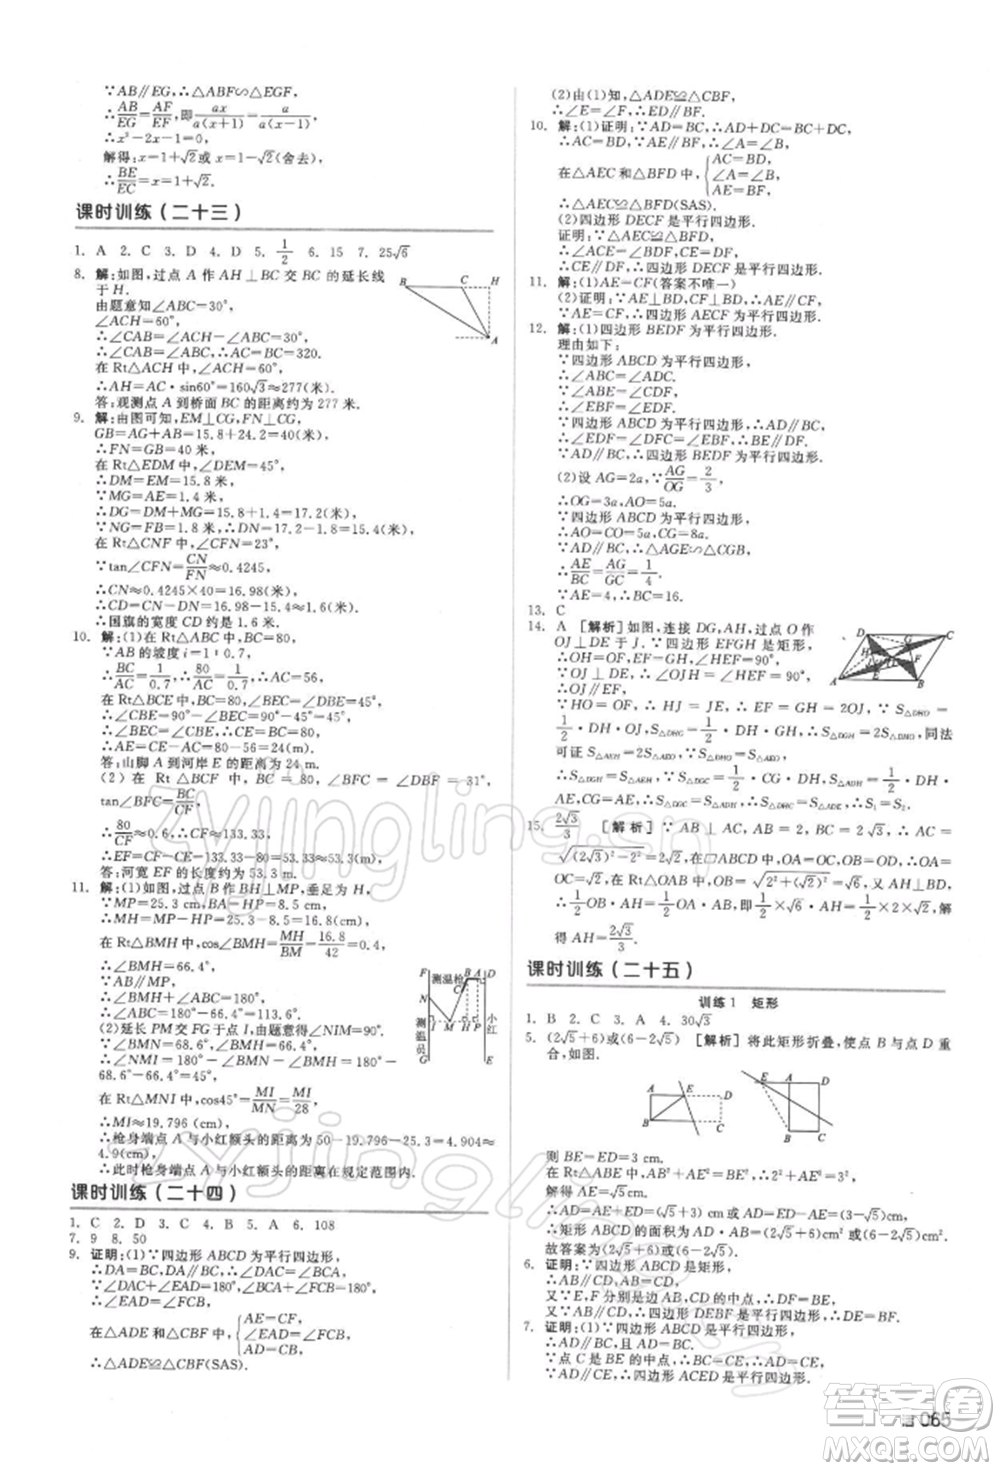 ∵AB∥EG,∴△ABF∽△GEF.
∴AB/EG=AF/EF,即ax/a(x+1)=a/a(x-1).
∴x²-2x-1=0,
解得:x=1+√2或x=1-√2(舍去),
∴BE/EC=x=1+√2.
课时训练(二十三)
1. A 2. C 3. D 4. D 5. 1/2 6. 15 7. 25√6
8. 解:如图,过点 A 作 AH⊥BC 交 BC 的延长线
于 H.
由题意知∠ABC=30°,
∠ACH=60°,
∴∠CAB=∠ACH-∠ABC=30°.
∴∠CAB=∠ABC,∴AC=BC=320.
在 Rt△ACH 中,∠ACH=60°,
∴AH=AC·sin60°=160√3≈277(米).
答:观测点 A 到桥面 BC 的距离约为 277 米.
B C H A
9. 解:由图可知,EM⊥CG,FN⊥CG,
GB=AG+AB=15.8+24.2=40(米),
∴FN=GB=40(米).
在 Rt△EDM 中,∠DEM=45°,
∴DM=EM=15.8 米,
∵MG=AE=1.4 米,
∴DG=DM+MG=15.8+1.4=17.2(米),
∵NG=FB=1.8 米,∴DN=17.2-1.8=15.4(米),
在 Rt△CNF 中,∠CFN=23°,
∵tan∠CFN=CN/FN≈0.4245,
∴CN≈0.4245×40=16.98(米),
∴CD=CN-DN=16.98-15.4≈1.6(米),
∴国旗的宽度 CD 约是 1.6 米.
10. 解:(1)在 Rt△ABC 中,BC=80,
∵AB 的坡度 i=1:0.7,
∴BC/AC=1/0.7,∴80/AC=1/0.7,∴AC=56,
在 Rt△BCE 中,BC=80,∠BEC=∠DBE=45°,
∴∠CBE=90°-∠BEC=90°-45°=45°,
∴∠BEC=∠CBE,∴CE=BC=80,
∴AE=CE-AC=80-56=24(m).
答:山脚 A 到河岸 E 的距离为 24 m.
(2)在 Rt△BCF 中,BC=80,∠BFC=∠DBF=31°,
tan∠BFC=BC/CF,
∴80/CF≈0.6,∴CF≈133.33,
∴EF=CF-CE=133.33-80=53.33≈53.3(m).
答:河宽 EF 的长度约 53.3 m.
11. 解:(1)如图,过点 B 作 BH⊥MP,垂足为 H,
∵MP=25.3 cm,BA=HP=8.5 cm,
∴MH=MP-HP=25.3-8.5=16.8(cm),
在 Rt△BMH 中,cos∠BMH=MH/BM=16.8/42=0.4,
∴∠BMH=66.4°,
∵AB∥MP,
∴∠BMH+∠ABC=180°,
∴∠ABC=180°-66.4°=113.6°.
(2)延长 PM 交 FG 于点 I,∴∠NIM=90°.
∵∠BMN=68.6°,∠BMH=66.4°,
∴∠NMI=180°-∠BMN-∠BMH=180°-
68.6°-66.4°=45°.
在 Rt△MNI 中,cos45°=MI/MN=MI/28,
∴MI≈19.796(cm),
∴枪身端点 A 与小红额头的距离为 50-19.796-25.3=4.904≈
4.9(cm).
∴此时枪身端点 A 与小红额头的距离在规定范围内.
F 测温枪 B A D C N 测温员 小红 I M H P G E
课时训练(二十四)
1. C 2. D 3. C 4. B 5. A 6. 108
7. 9 8. 50
9. 证明:(1)∵四边形 ABCD 为平行四边形,
∴DA=BC,DA∥BC,∴∠DAC=∠BCA,
∵∠DAC+∠EAD=180°,∠BCA+∠FCB=180°,
∴∠EAD=∠FCB,
在△ADE 和△CBF 中,{AE=CF, ∠EAD=∠FCB, AD=CB,
∴△ADE≌△CBF(SAS).
(2)由(1)知,△ADE≌△CBF,
∴∠E=∠F,∴ED∥BF.
10. 解:(1)证明:∵AD=BC,∴AD+DC=BC+DC,
∴AC=BD,∵AE∥BF,∴∠A=∠B,
在△AEC 和△BFD 中,{AC=BD, ∠A=∠B, AE=BF,
∴△AEC≌△BFD(SAS).
(2)四边形 DECF 是平行四边形.
证明:∵△AEC≌△BFD,
∴∠ACE=∠BDF,CE=DF,
∴CE∥DF,∴四边形 DECF 是平行四边形.
11. 解:(1)AE=CF(答案不唯一)
(2)证明:∵AE⊥BD,CF⊥BD,∴AE∥CF,
∵AE=CF,∴四边形 AECF 为平行四边形.
12. 解:(1)四边形 BEDF 为平行四边形.
理由如下:
∵四边形 ABCD 为平行四边形,
∴∠ABC=∠ADC.
∵∠ABE=∠CDF,
∴∠EBF=∠EDF.
∵四边形 ABCD 为平行四边形,∴AD∥BC.
∴∠EDF=∠DFC=∠EBF,
∴BE∥DF,
∵AD∥BC,∴四边形 BEDF 为平行四边形.
(2)设 AG=2a,∵AG/OG=2/3,
∴OG=3a,AO=5a.
∴AO=CO=5a,CG=8a.
∵AD∥BC,∴△AGE∽△CGB.
∴AE/BC=AG/GC=1/4.
∵AE=4,∴BC=16.
13. C
14. A [解析]如图,连接 DG,AH,过点 O 作
OJ⊥DE 于 J.∵四边形 EFGH 是矩形,
∴OH=OF,EF=GH,∠HEF=90°,
∵OJ⊥DE,∴∠OJH=∠HEF=90°,
∴OJ∥EF,
∵HO=OF,∴HJ=JE,∴EF=GH=2OJ,∵S△DHO=
1/2·DH·OJ,S△DGH=1/2·DH·GH,∴S△DGH=2S△DHO,同法
可证 S△AEH=2S△AEO,
∴S△DGH=S△AEH,∵S△DGC=1/2·CG·DH,S△ADH=1/2·DH·
AE,CG=AE,∴S△DGC=S△ADH,∴S₁=S₂.
15. 2√3/3 [解析]∵AB⊥AC,AB=2,BC=2√3,∴AC=
√((2√3)²-2²)=2√2,在▱ABCD 中,OA=OC,OB=OD,∴OA=
OC=√2.在 Rt△OAB 中,OB=√(2²+(√2)²)=√6,又 AH⊥BD,
∴1/2OB·AH=1/2OA·AB,即1/2×√6·AH=1/2×2×√2,解
得 AH=2√3/3.
课时训练(二十五)
训练1 矩形
1. B 2. C 3. A 4. 30√3
5. (2√5+6)或(6-2√5) [解析]将此矩形折叠,使点 B 与点 D 重
合,如图.
A E D B C E A D B C
则 BE=ED=3 cm,
在 Rt△ABE 中,AE²+AB²=BE²,
解得 AE=√5cm,
∴AD=AE+ED=(√5+3)cm 或 AD=ED-AE=(3-√5)cm.
∴矩形 ABCD 的面积为 AD·AB=(2√5+6)或(6-2√5)cm².
故答案为(2√5+6)或(6-2√5).
6. 证明:∵四边形 ABCD 是矩形,
∴AB∥CD,AB=CD,
又∵E,F 分别是边 AB,CD 的中点,∴DF=BE,
又∵AB∥CD,∴四边形 DEBF 是平行四边形,∴DE=BF.
7. 证明:(1)∵四边形 ABCD 是平行四边形,
∴AD∥BC,且 AD=BC.
∵点 C 是 BE 的中点,∴BC=CE,∴AD=CE,
∵AD∥CE,∴四边形 ACED 是平行四边形.
zyjingling.cn
zyjingling.cn
答案圈
MXQE.COM
065